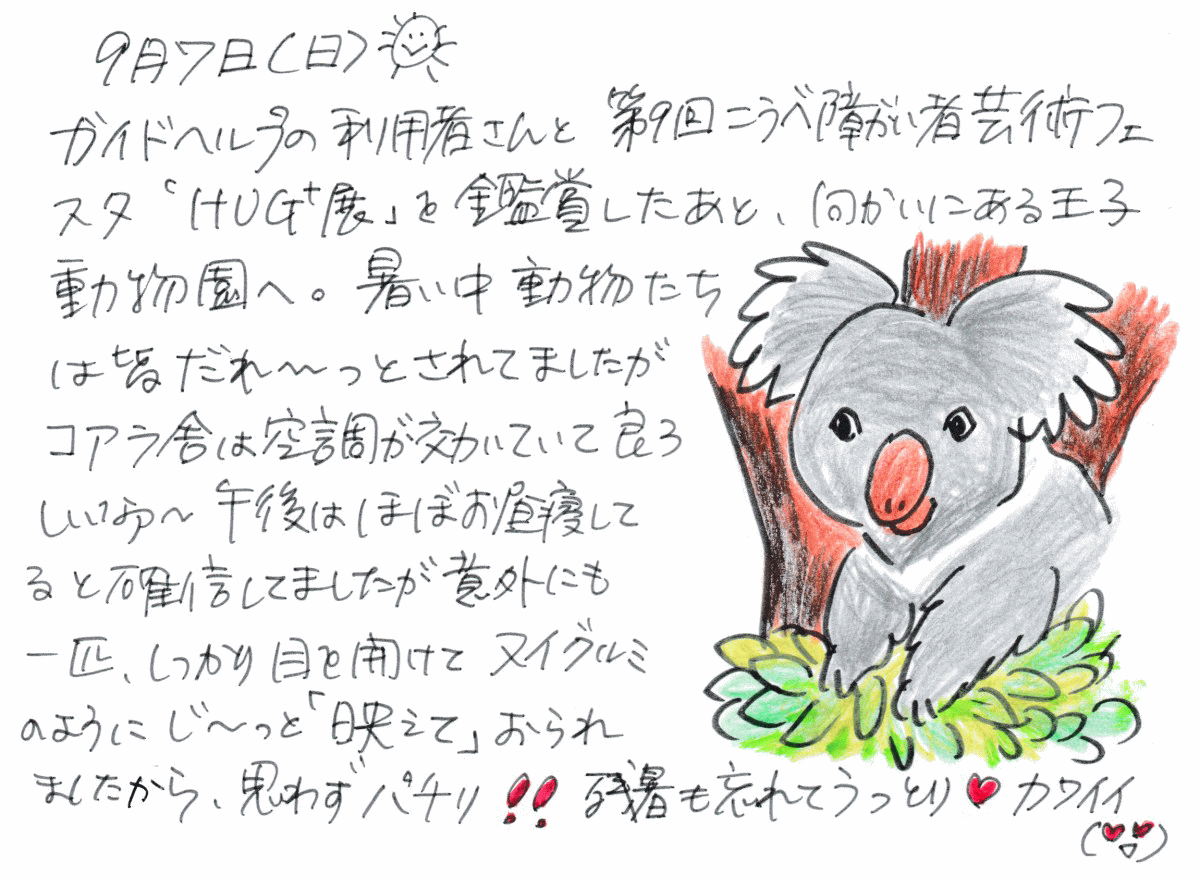 9月7日(日)
ガイドヘルプの利用者さんと 第9回こうべ障がい者芸術フェ
スタ「HUG+展」を鑑賞したあと、向かいにある王子
動物園へ。暑い中 動物たち
は皆だれ〜っとされてましたが
コアラ舎は空調が効いていて良ろ
しいなァ〜 午後はほぼお昼寝して
ると確信してましたが意外にも
一匹、しっかり目を開けて ヌイグルミ
のようにじ〜っと「映えて」おられ
ましたから、思わずパチリ!! 残暑も忘れてうっとり♥カワイイ